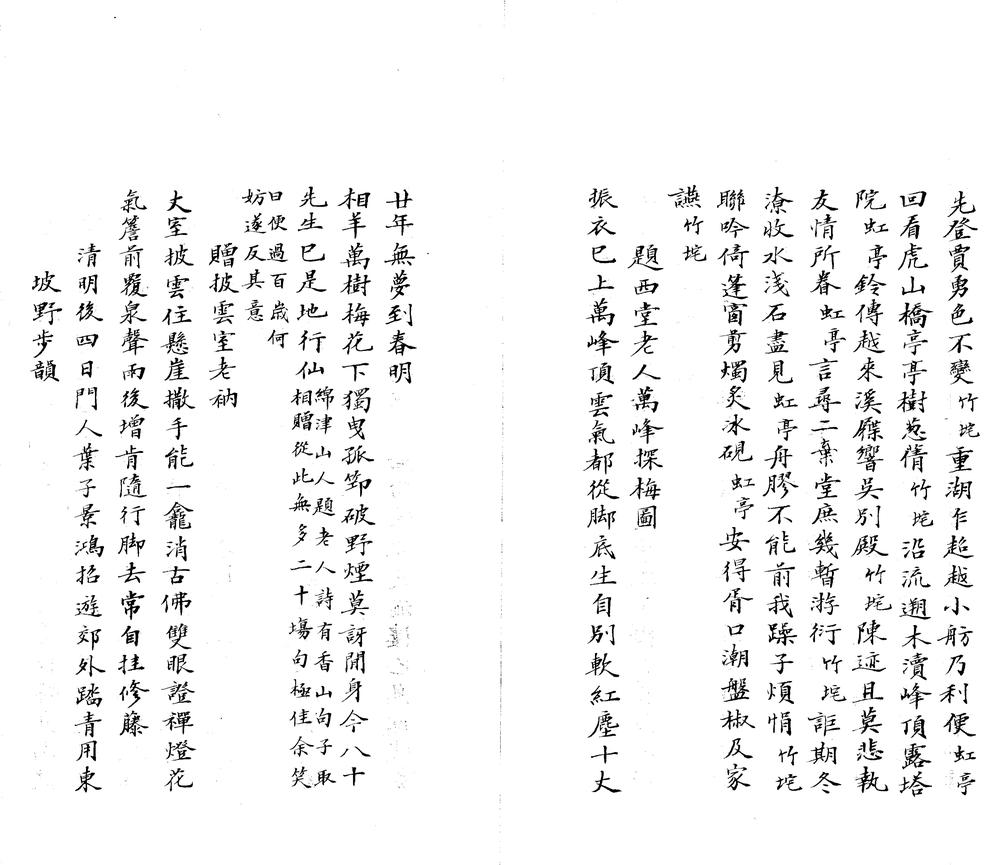 先登賈勇色不變竹垞重湖乍超越小舫乃利便虹亭
回看虎山橋亭亭樹葱蒨竹垞沿流遡木瀆峰頂露塔
院虹亭鈴傳越來溪屧響吳別殿竹垞陳迹且莫悲執
友情所眷虹亭言尋二棄堂庶幾暫游衍竹垞詎期冬
潦收水淺石盡見虹亭舟膠不能前我躁子煩悁竹垞
聯吟倚蓬窗剪燭炙冰硯虹亭安得胥口潮盤椒及家
讌竹垞
題西堂老人萬峰探梅圖
振衣已上萬峰頂雲氣都從脚底生自別軟紅塵十丈
廿年無夢到春明
相羊萬樹梅花下獨曳孤筇破野煙莫訝閒身今八十
先生已是地行仙綿津山人題老人詩有香山句子取
相贈從此無多二十塲句極佳余笑
曰便過百歲何
妨遂反其意
贈披雲室老衲
丈室披雲住懸崖撒手能一龕消古佛雙眼證禪燈花
氣簷前覆泉聲雨後增肯隨行脚去常自拄修藤
清明後四日門人葉子景鴻招遊郊外踏青用東
坡野步韻